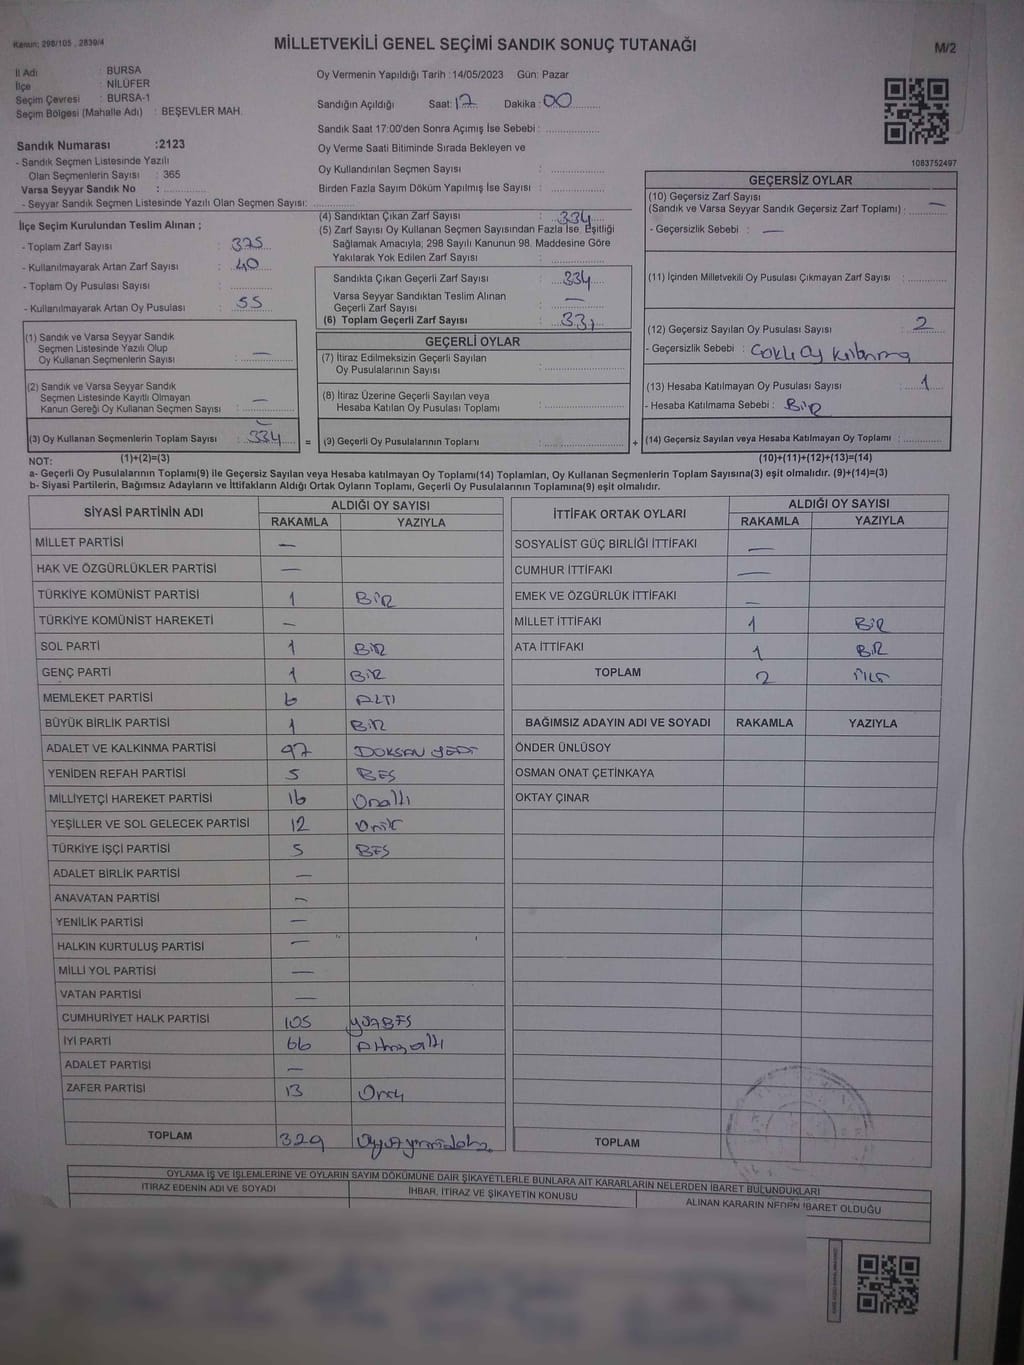 Kanun; 298/105 , 2839/4
MİLLETVEKİLİ GENEL SEÇİMİ SANDIK SONUÇ TUTANAĞI
M/2
İl Adı : BURSA
İlçe : NİLÜFER
Seçim Çevresi : BURSA-1
Seçim Bölgesi (Mahalle Adı) : BEŞEVLER MAH.
Oy Vermenin Yapıldığı Tarih :14/05/2023 Gün: Pazar
Sandığın Açıldığı Saat: 17 Dakika : 00
Sandık Saat 17:00'den Sonra Açımış İse Sebebi :
Oy Verme Saati Bitiminde Sırada Bekleyen ve
Oy Kullandırılan Seçmen Sayısı :
Birden Fazla Sayım Döküm Yapılmış İse Sayısı :
1083752497
Sandık Numarası :2123
- Sandık Seçmen Listesinde Yazılı
Olan Seçmenlerin Sayısı : 365
Varsa Seyyar Sandık No :
- Seyyar Sandık Seçmen Listesinde Yazılı Olan Seçmen Sayısı:
İlçe Seçim Kurulundan Teslim Alınan ;
- Toplam Zarf Sayısı : 375
- Kullanılmayarak Artan Zarf Sayısı : 40
- Toplam Oy Pusulası Sayısı :
- Kullanılmayarak Artan Oy Pusulası : 55
(1) Sandık ve Varsa Seyyar Sandık
Seçmen Listesinde Yazılı Olup
Oy Kullanan Seçmenlerin Sayısı : —
(2) Sandık ve Varsa Seyyar Sandık
Seçmen Listesinde Kayıtlı Olmayan
Kanun Gereği Oy Kullanan Seçmen Sayısı : —
(3) Oy Kullanan Seçmenlerin Toplam Sayısı : 334 =
(1)+(2)=(3)
(4) Sandıktan Çıkan Zarf Sayısı : 334
(5) Zarf Sayısı Oy Kullanan Seçmen Sayısından Fazla İse, Eşitliği
Sağlamak Amacıyla; 298 Sayılı Kanunun 98. Maddesine Göre
Yakılarak Yok Edilen Zarf Sayısı :
Sandıkta Çıkan Geçerli Zarf Sayısı : 334
Varsa Seyyar Sandıktan Teslim Alınan
Geçerli Zarf Sayısı : —
(6) Toplam Geçerli Zarf Sayısı :
GEÇERLİ OYLAR
(7) İtiraz Edilmeksizin Geçerli Sayılan
Oy Pusulalarının Sayısı :
(8) İtiraz Üzerine Geçerli Sayılan veya
Hesaba Katılan Oy Pusulası Toplamı :
(9) Geçerli Oy Pusulalarının Toplamı : +
GEÇERSİZ OYLAR
(10) Geçersiz Zarf Sayısı
(Sandık ve Varsa Seyyar Sandık Geçersiz Zarf Toplamı) : —
- Geçersizlik Sebebi : —
(11) İçinden Milletvekili Oy Pusulası Çıkmayan Zarf Sayısı :
(12) Geçersiz Sayılan Oy Pusulası Sayısı : 2
- Geçersizlik Sebebi :
(13) Hesaba Katılmayan Oy Pusulası Sayısı : 1
- Hesaba Katılmama Sebebi : BİR
(14) Geçersiz Sayılan veya Hesaba Katılmayan Oy Toplamı :
(10)+(11)+(12)+(13)=(14)
NOT:
a- Geçerli Oy Pusulalarının Toplamı(9) ile Geçersiz Sayılan veya Hesaba katılmayan Oy Toplamı(14) Toplamları, Oy Kullanan Seçmenlerin Toplam Sayısına(3) eşit olmalıdır. (9)+(14)=(3)
b- Siyasi Partilerin, Bağımsız Adayların ve İttifakların Aldığı Ortak Oyların Toplamı, Geçerli Oy Pusulalarının Toplamına(9) eşit olmalıdır.
SİYASİ PARTİNİN ADI ALDIĞI OY SAYISI
RAKAMLA YAZIYLA
MİLLET PARTİSİ —
HAK VE ÖZGÜRLÜKLER PARTİSİ —
TÜRKİYE KOMÜNİST PARTİSİ 1 BİR
TÜRKİYE KOMÜNİST HAREKETİ —
SOL PARTİ 1 BİR
GENÇ PARTİ 1 BİR
MEMLEKET PARTİSİ 6 ALTI
BÜYÜK BİRLİK PARTİSİ 1 BİR
ADALET VE KALKINMA PARTİSİ 97 DOKSAN YEDİ
YENİDEN REFAH PARTİSİ 5 BEŞ
MİLLİYETÇİ HAREKET PARTİSİ 16 Onaltı
YEŞİLLER VE SOL GELECEK PARTİSİ 12 Oniki
TÜRKİYE İŞÇİ PARTİSİ 5 BEŞ
ADALET BİRLİK PARTİSİ —
ANAVATAN PARTİSİ —
YENİLİK PARTİSİ —
HALKIN KURTULUŞ PARTİSİ —
MİLLİ YOL PARTİSİ —
VATAN PARTİSİ —
CUMHURİYET HALK PARTİSİ 105 YÜZBEŞ
İYİ PARTİ 66 Altmışaltı
ADALET PARTİSİ —
ZAFER PARTİSİ 13 Onüç
TOPLAM 329
İTTİFAK ORTAK OYLARI ALDIĞI OY SAYISI
RAKAMLA YAZIYLA
SOSYALİST GÜÇ BİRLİĞİ İTTİFAKI —
CUMHUR İTTİFAKI —
EMEK VE ÖZGÜRLÜK İTTİFAKI —
MİLLET İTTİFAKI 1 BİR
ATA İTTİFAKI 1 BİR
TOPLAM 2 İKİ
BAĞIMSIZ ADAYIN ADI VE SOYADI RAKAMLA YAZIYLA
ÖNDER ÜNLÜSOY
OSMAN ONAT ÇETİNKAYA
OKTAY ÇINAR
TOPLAM
OYLAMA İŞ VE İŞLEMLERİNE VE OYLARIN SAYIM DÖKÜMÜNE DAİR ŞİKAYETLERLE BUNLARA AİT KARARLARIN NELERDEN İBARET BULUNDUKLARI
İTİRAZ EDENİN ADI VE SOYADI İHBAR, İTİRAZ VE ŞİKAYETİN KONUSU ALINAN KARARIN NEDEN İBARET OLDUĞU